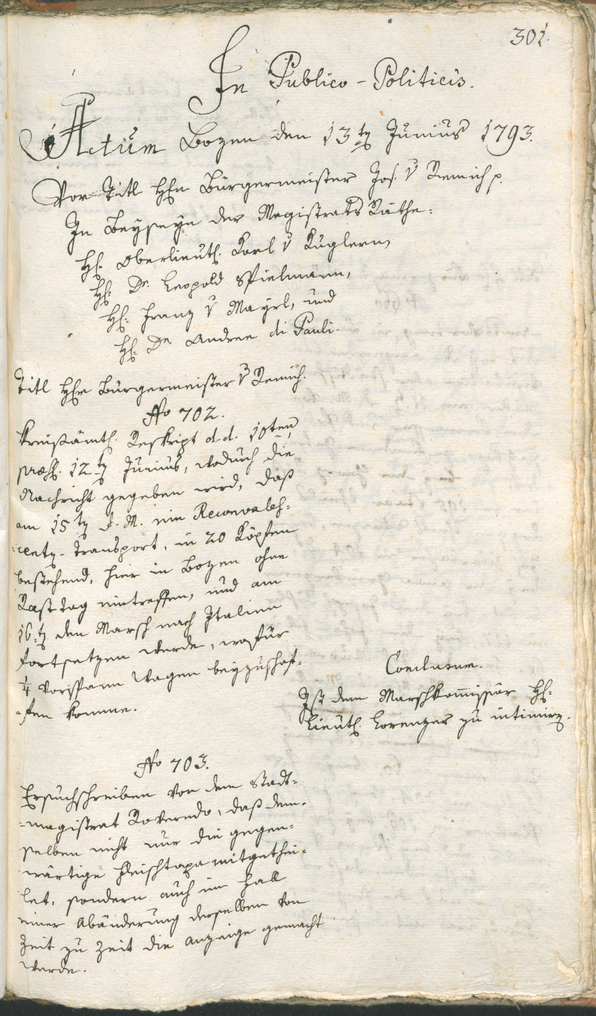 301.
In Publico-Politicis.
Actum Bozen den 13t Junius 1793.
Vor Titl Hhn Bürgermeister Jos. v Remich p.
In Beyseyn der Magistrats Räthe:
Hh. Oberlieut. Karl v Kuglern,
Hh. Dr. Leopold Spielmann,
Hh. Franz v Mayrl, und
Hh. Dr. Andree di Pauli.
Titl Hhn Bürgermeister v Remich.
No 702.
Kreisämtl. Reskript d. d. 10ten
præs. 12t Junius, wodurch die
Nachricht gegeben wird, daß
am 15t d. M. ein Reconvales-
centz-Transport, in 20 Köpfen
bestehend, hier in Bozen ohne
Rasttag eintreffen, und am
16t den Marsch nach Italien
fortsetzen werde, wofür
Vorspann Wagen beyzuschaf-
fen komme.
Conclusum.
Ist dem Marschkommissär Hh.
Lieut. Lorenzer zu intimirn.
No 703.
Ersuchschreiben von dem Stadt-
magistrat Roveredo, daß dem-
selben nicht nur die gegen-
wärtige Fleischtaxa mitgethei-
let, sondern auch im Fall
einer Abänderung derselben von
Zeit zu Zeit die Anzeige gemacht
werde.